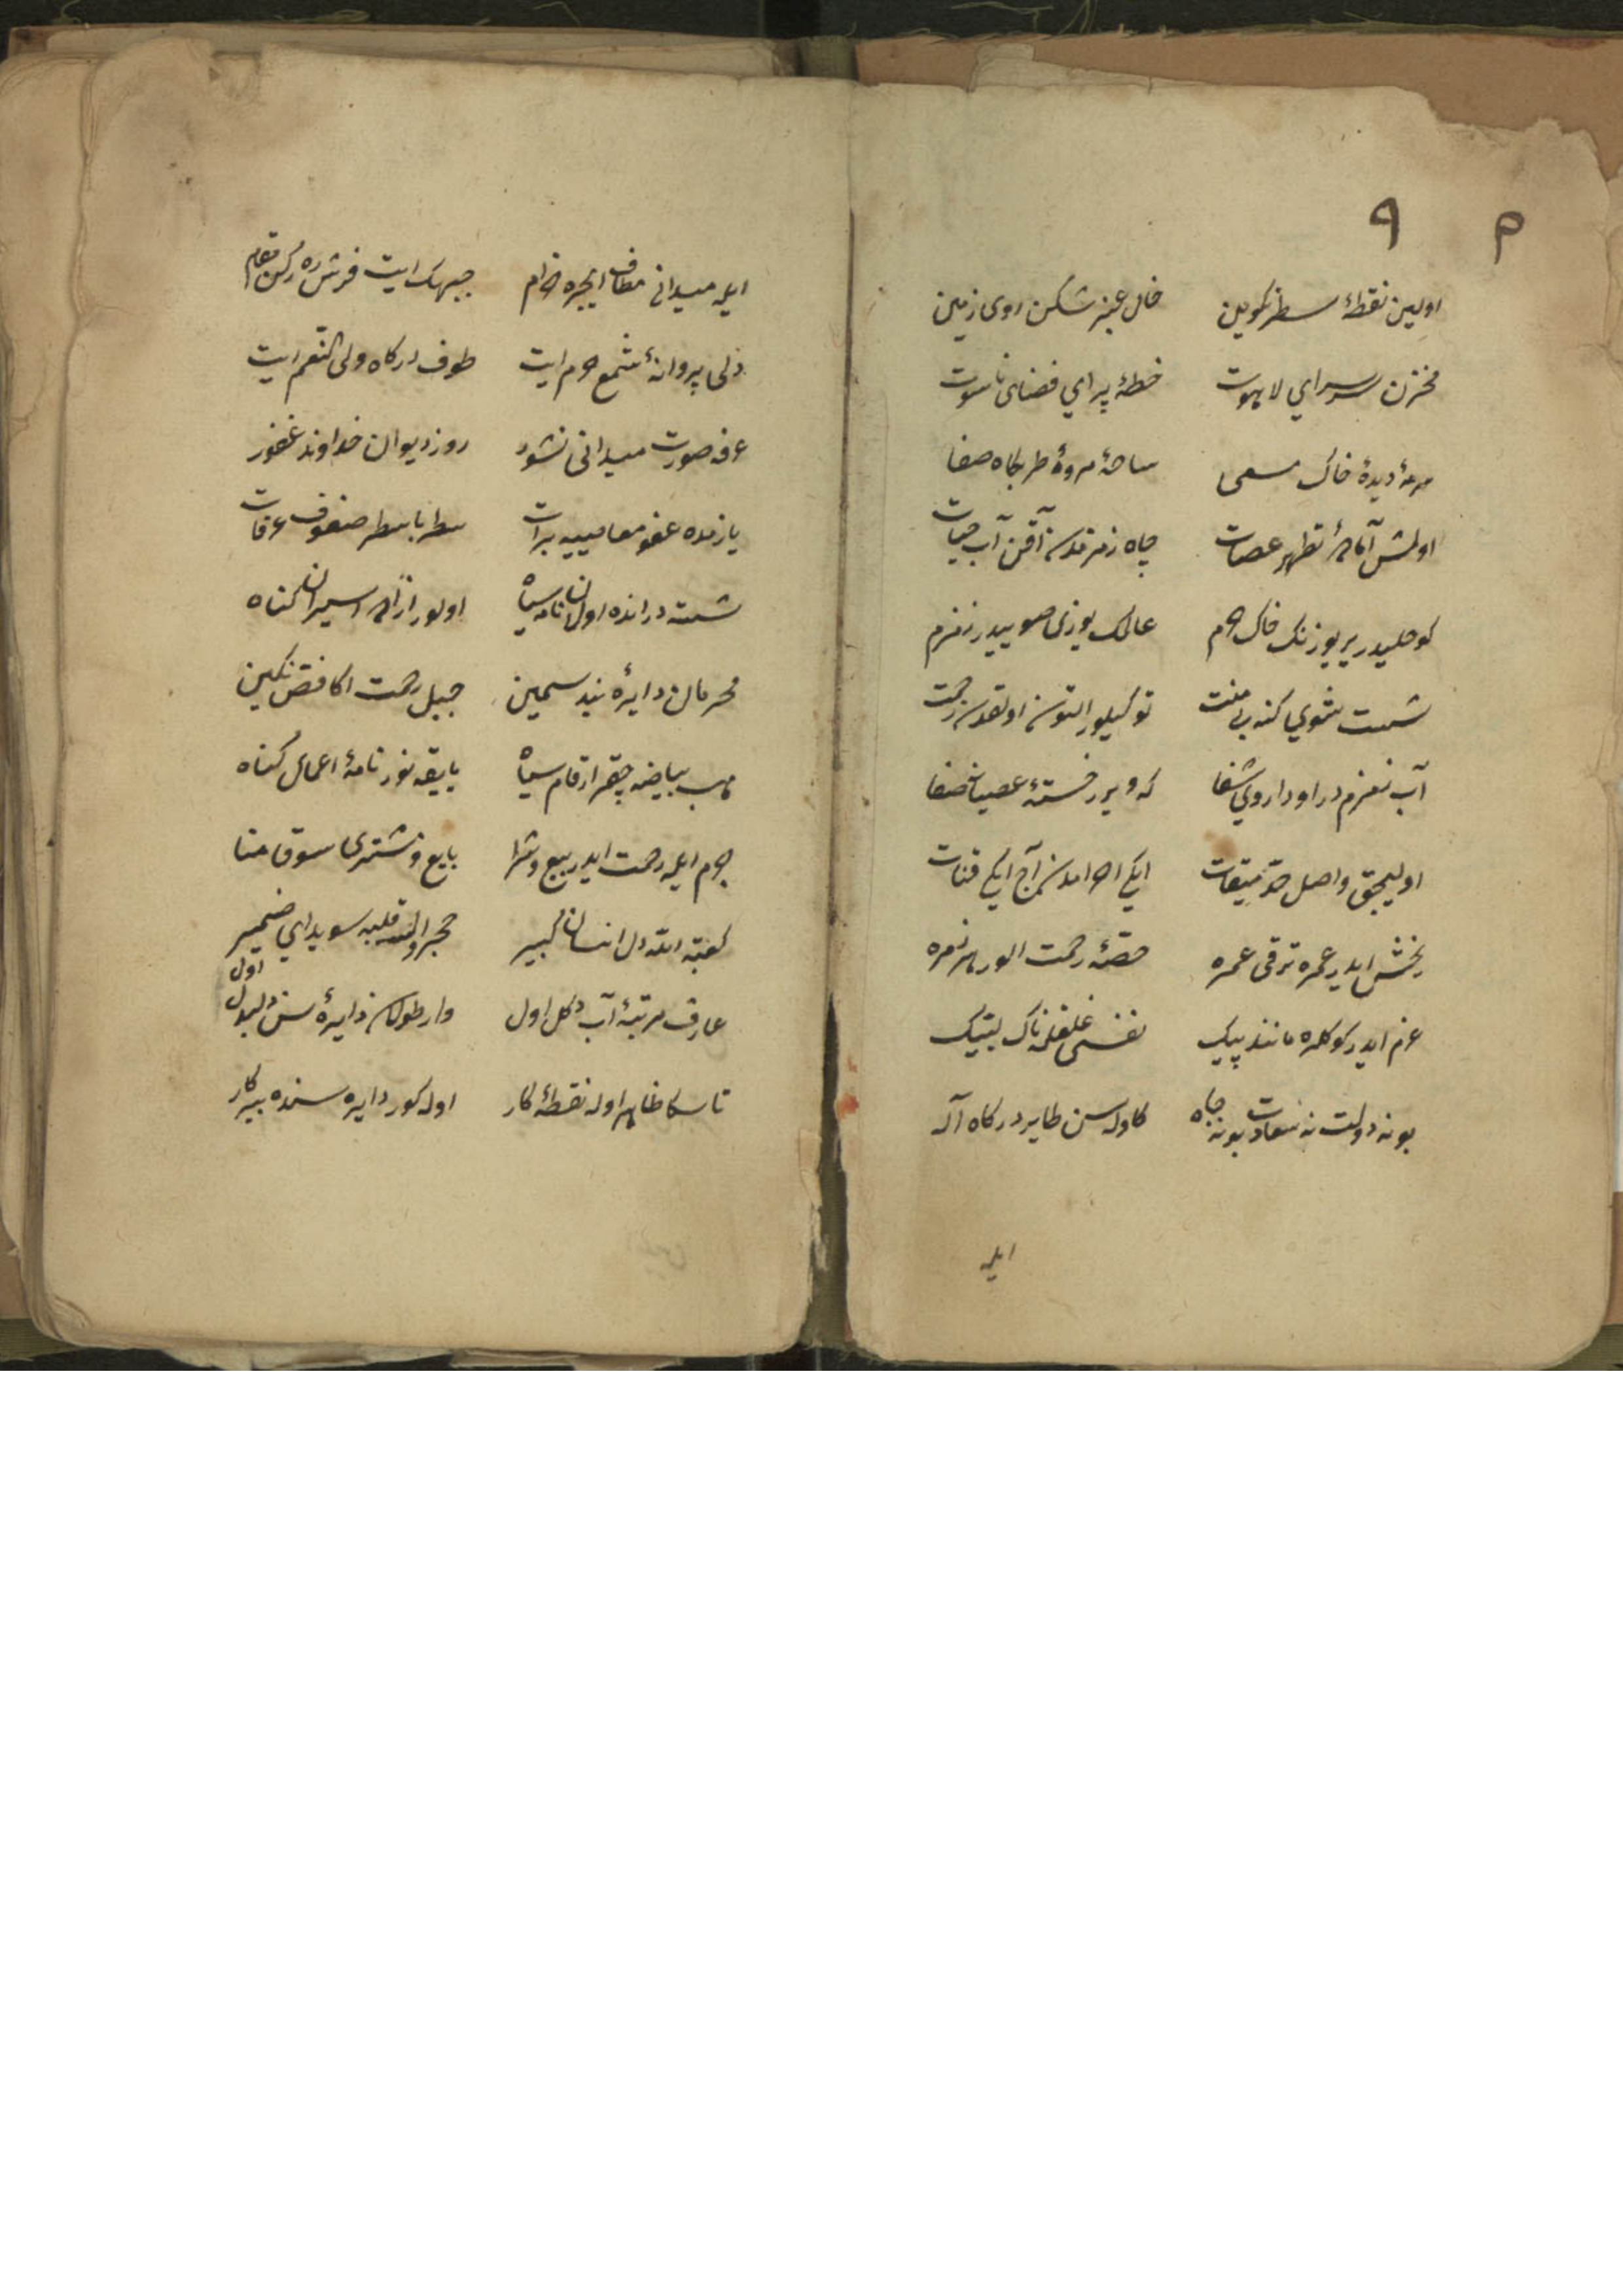 ٩ م
اولین نقطهٔ سطر تکوین خال عنبر شکن روی زمین
مخزن سر سرای لاهوت خطهٔ پیرای فضای ناسوت
سرمهٔ دیدهٔ خاک مسعی ساحهٔ مروهٔ طربگاه صفا
اولمش آمادهٔ تطهیر عصات چاه زمزمدن آقن آب حیات
کوحلیدر یر یوزنک خاک حرم عالمک یوزی صوییدر زمزم
شست شوی کنه بی منت توکیلور التون اولقدن رحمت
آب زمزم در او داروی شفا که ویرر خستهٔ عصیانه صفا
اولیجق واصل حد میقات ایکی احرامدن آچ ایکی قنات
بخش ایدر عمره ترقی عمره حصهٔ رحمت الور هر زمره
عزم ایدر کوکلره مانند پیک نفسی غلغله‌ناک لبیک
بو نه دولت نه سعادت بو نه جاه که اوله سن طایر درکاه اله
ایله
ایله میدانی مطاف ایچره خرام جبهک ایت فرش ره رکن مقام
دلی پروانهٔ شمع حرم ایت طوف درکاه ولی النعم ایت
عرفه صورت میدانی نشور روز دیوان خداوند غفور
یازمده عفو معاصییه برات سطر با سطر صفوف عرفات
شسته در انده اولان نامه سیاه اولور آزاده اسیران کناه
محرمان دایرهٔ بند سیمین جبل رحمت اکا فص نکین
هب بیاضه چقر ارقام سیاه یایقه‌نور نامهٔ اعمال کناه
جرم ایله رحمت ایدر بیع و شرا بایع و مشتری سوق منا
کعبة الله دل انسان کبیر حجر والله قلبه سویدای ضمیر
عارف مرتبهٔ آب و کل اول وار طولان دایرهٔ سن دلبول اول
تا سکا ظاهر اوله نقطهٔ کار اوله کور دایره سنده پرکار